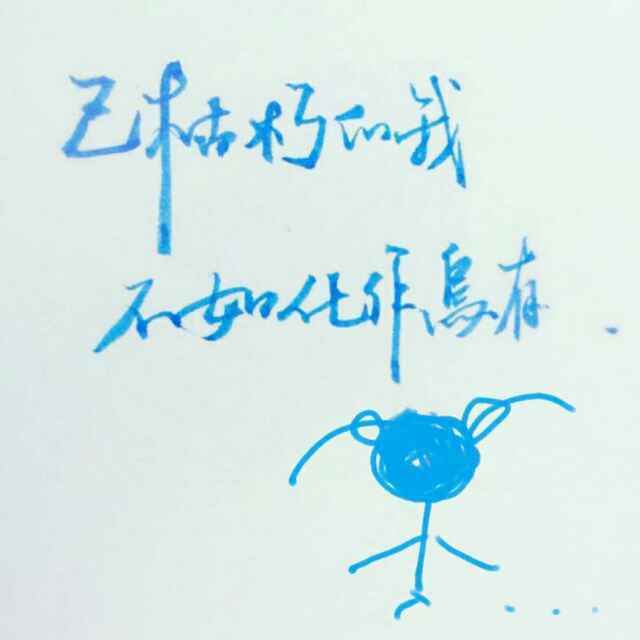 已枯朽的我
不如化作烏有.
...